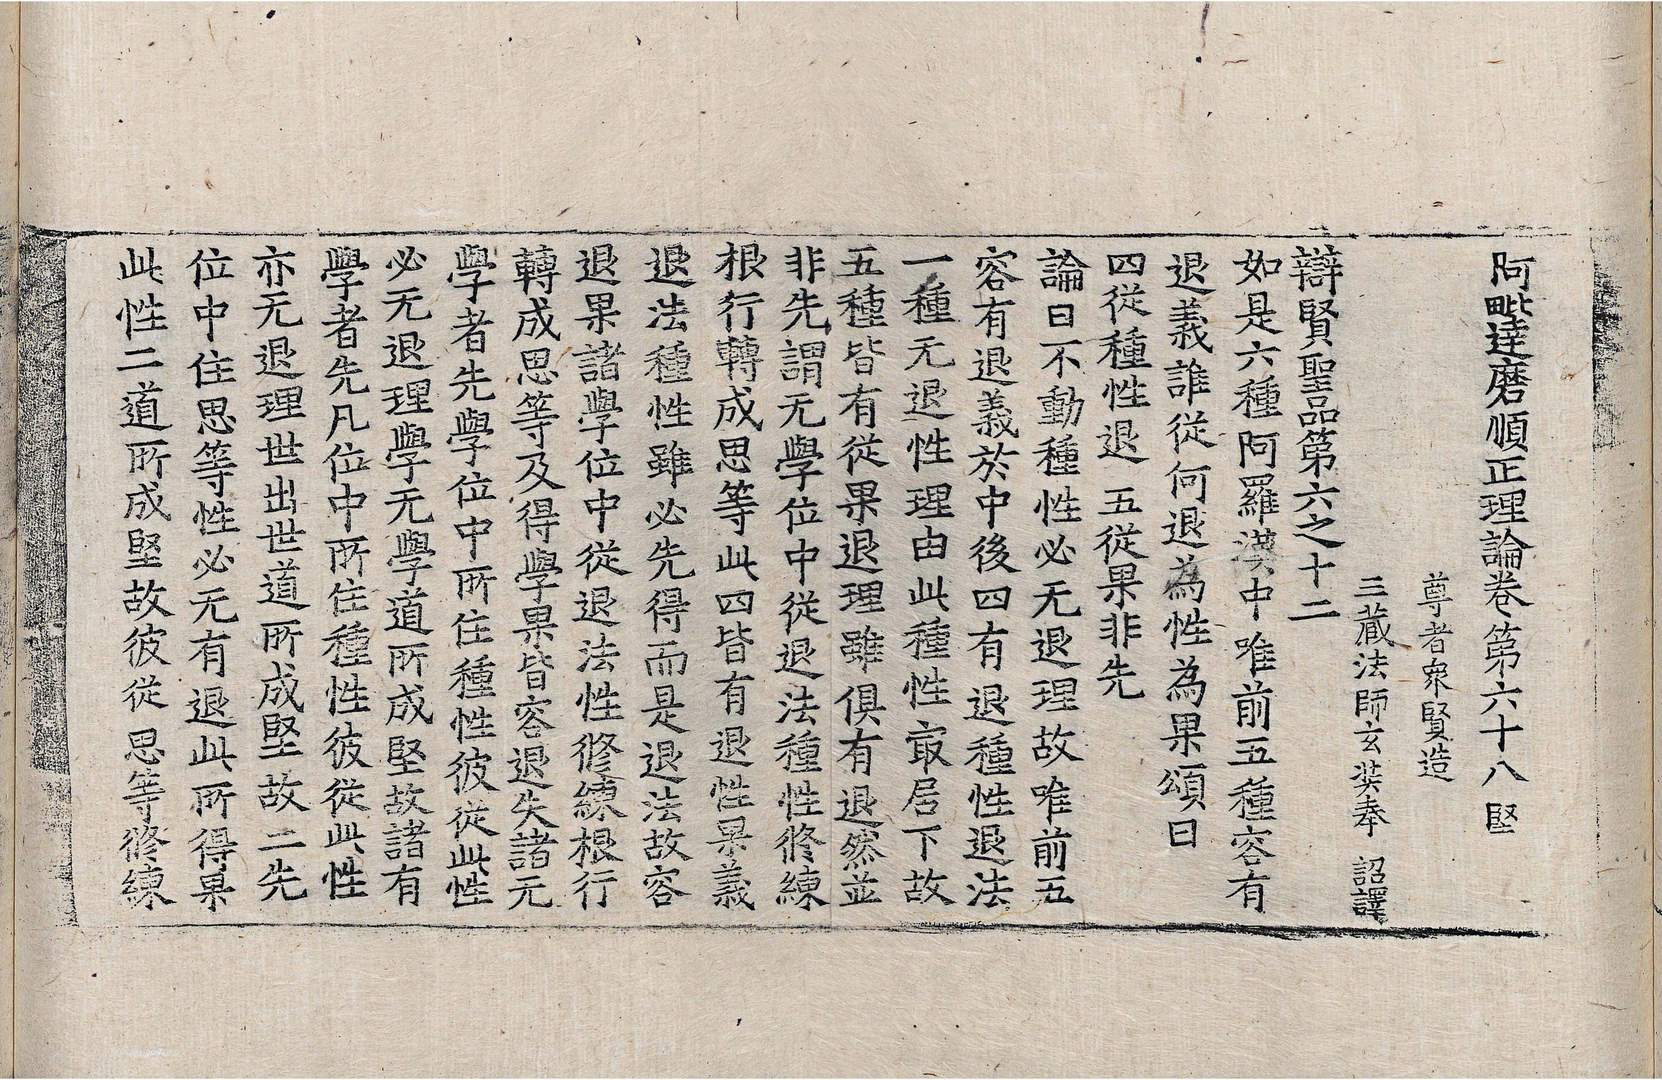 阿毗達磨順正理論卷第六十八 堅
尊者衆賢造
三藏法師玄奘奉 詔譯
辯賢聖品第六之十二
如是六種阿羅漢中唯前五種容有
退義誰從何退為性為果頌曰
四從種性退 五從果非先
論曰不動種性必无退理故唯前五
容有退義於中後四有退種性退法
一種无退性理由此種性㝡居下故
五種皆有從果退理雖俱有退然並
非先謂无學位中從退法種性修練
根行轉成思等此四皆有退性果義
退法種性雖必先得而是退法故容
退果諸學位中從退法性修練根行
轉成思等及得學果皆容退失諸无
學者先學位中所住種性彼從此性
必无退理學无學道所成堅故諸有
學者先凡位中所住種性彼從此性
亦无退理世出世道所成堅故二先
位中住思等性必无有退此所得果
此性二道所成堅故彼從思等修練